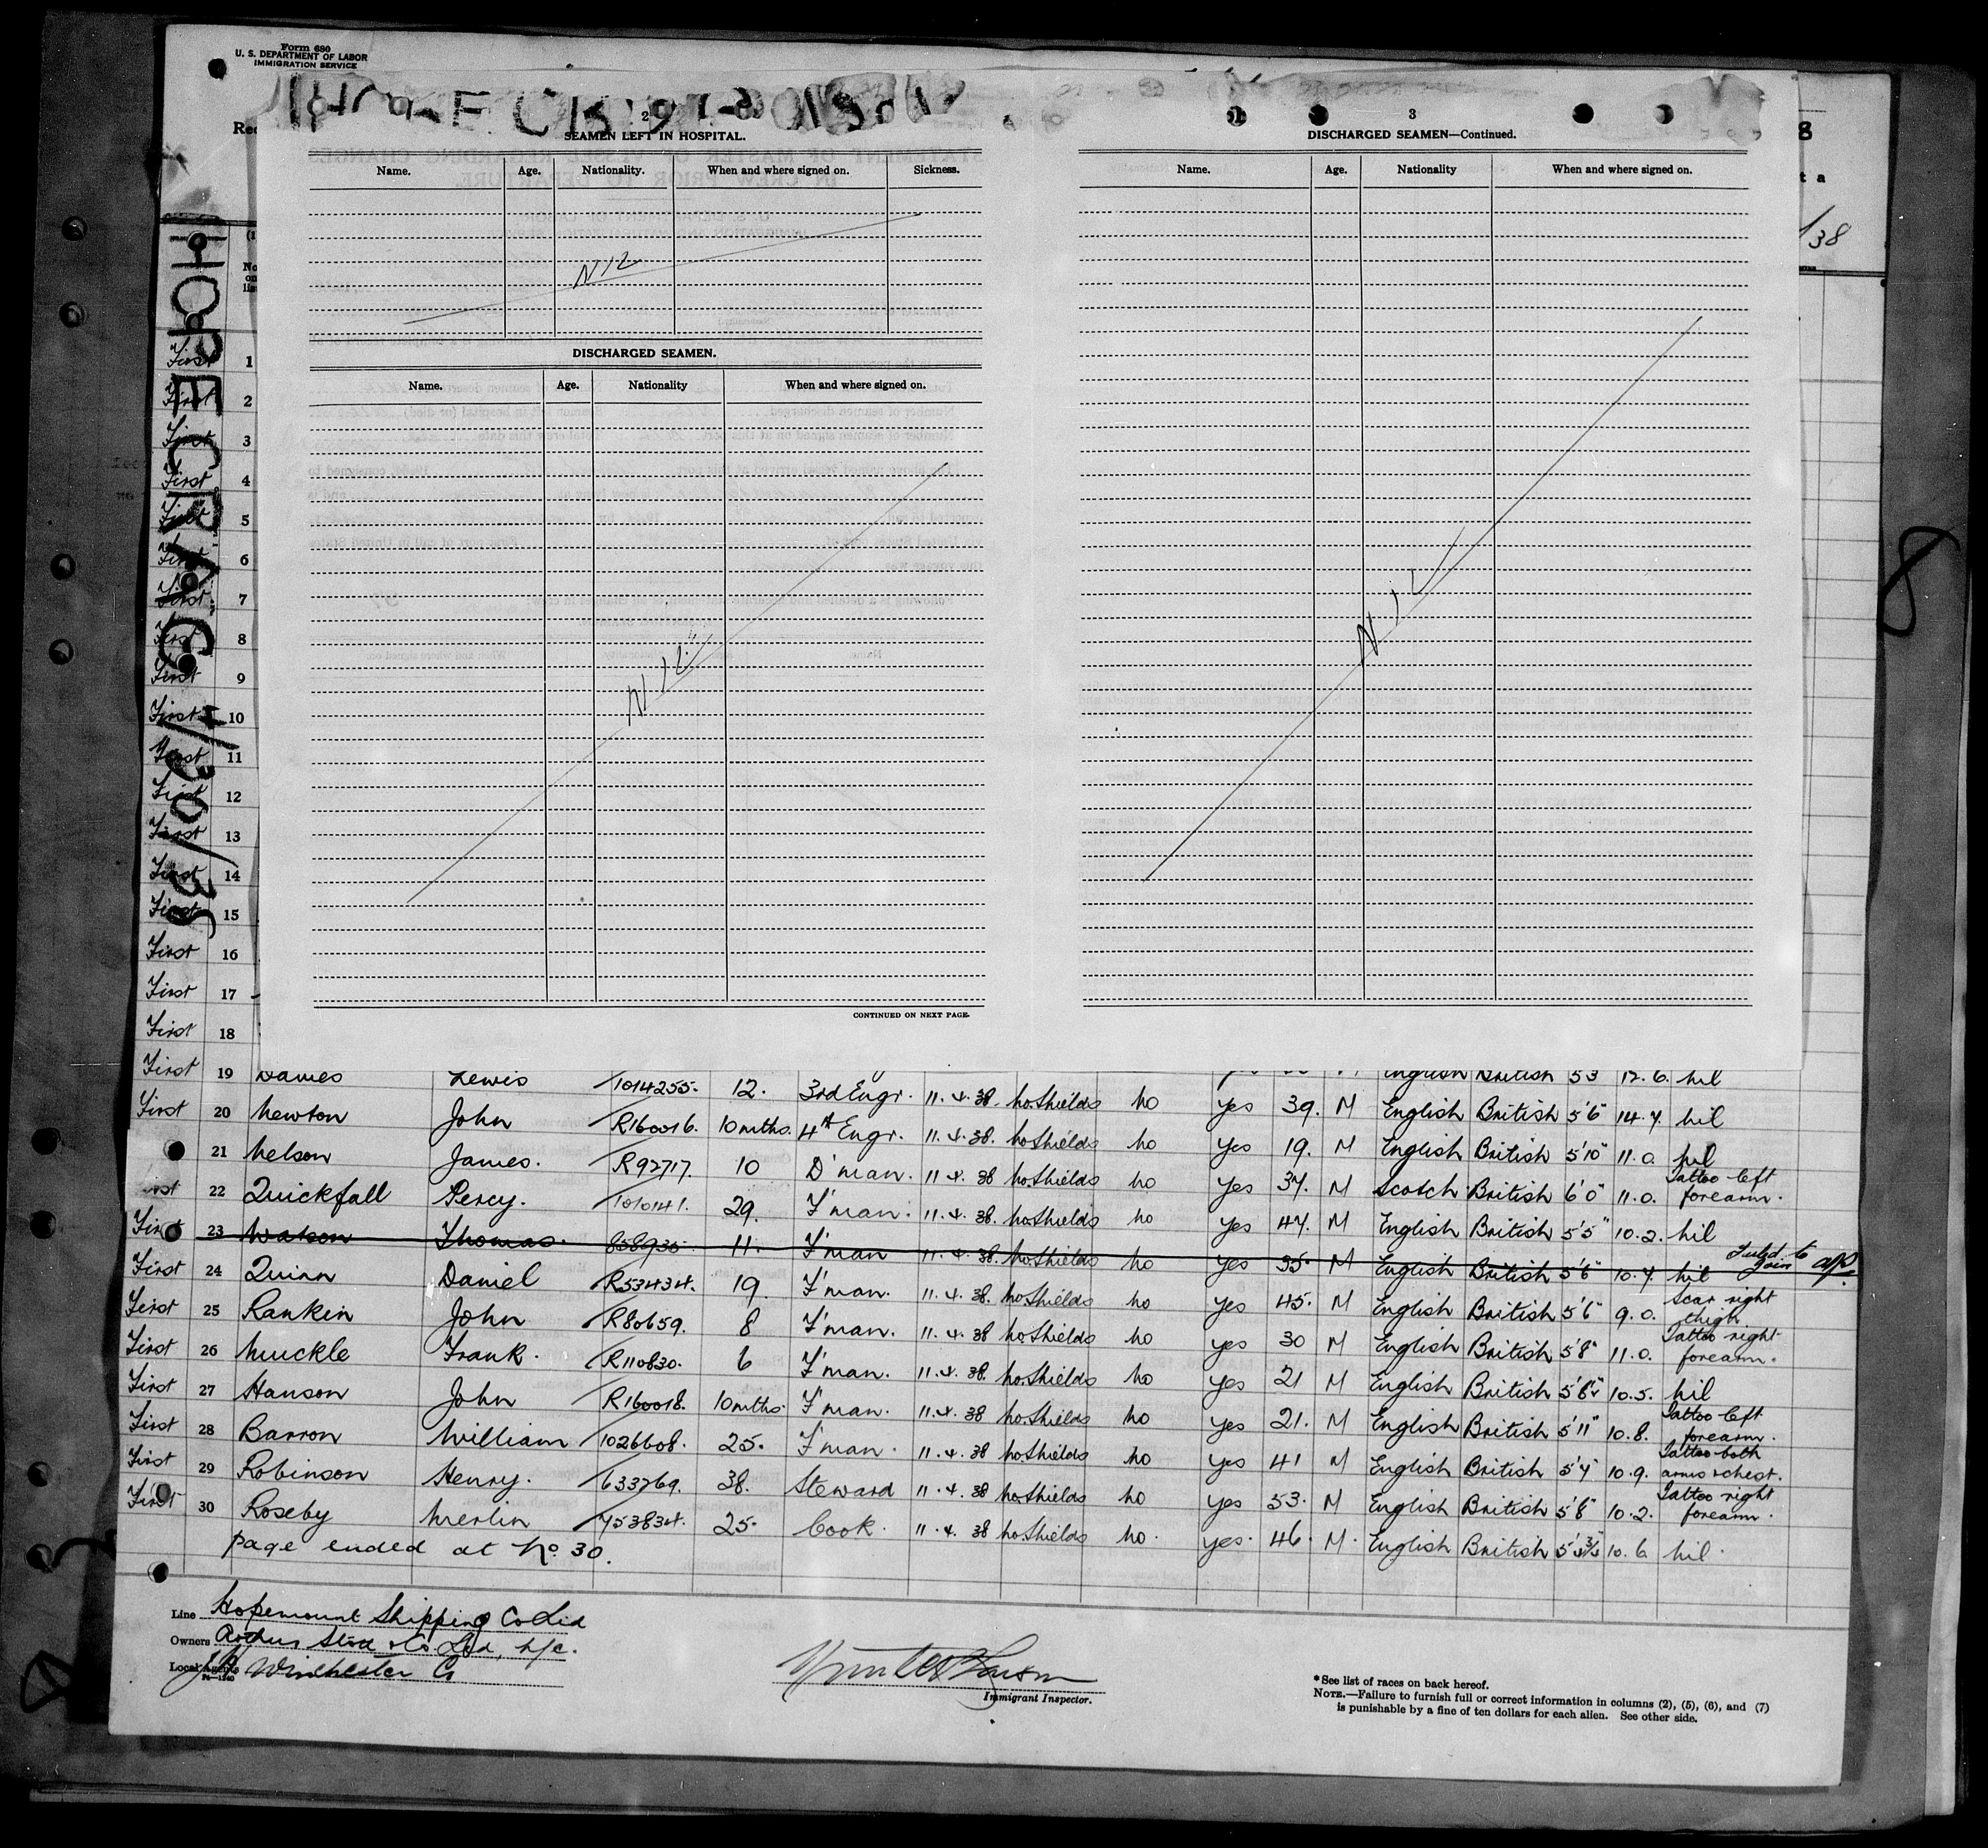 Form 680
U. S. DEPARTMENT OF LABOR
IMMIGRATION SERVICE
2
SEAMEN LEFT IN HOSPITAL.
Name. Age. Nationality. When and where signed on. Sickness.
Nil
DISCHARGED SEAMEN.
Name. Age. Nationality When and where signed on.
Nil
CONTINUED ON NEXT PAGE.
3
DISCHARGED SEAMEN—Continued.
Name. Age. Nationality When and where signed on.
Nil
8
t a
/38
8
HOPECRAIG
First 1
First 2
First 3
First 4
First 5
First 6
First 7
First 8
First 9
First 10
First 11
First 12
First 13
First 14
First 15
First 16
First 17
First 18
First 19 Davies Lewis 1014255. 12. 3rd Engr. 11.4.38. No.Shields No Yes 39. M English British 5'6" 14.7. Nil
First 20 Newton John R160016. 10mths. 4th Engr. 11.4.38. No.Shields No Yes 19. M English British 5'10" 11.0. Nil
21 Nelson James. R92717. 10 D'man. 11.4.38 No.Shields No Yes 37. M Scotch British 6'0" 11.0. Tattoo left forearm.
22 Quickfall Percy. 1010141. 29. F'man. 11.4.38. No.Shields No Yes 47. M English British 5'5" 10.2. Nil
First 23 Watson Thomas. 858935. 11. F'man 11.4.38. No.Shields No Yes 35. M English British 5'6" 10.7. Nil Failed to join
First 24 Quinn Daniel R53434. 19. F'man. 11.4.38. No.Shields No Yes 45. M English British 5'6" 9.0. Scar right thigh
First 25 Rankin John R80659. 8 F'man. 11.4.38 No.Shields No Yes 30 M English British 5'8" 11.0. Tattoo right forearm.
First 26 Muckle Frank. R110830. 6 F'man. 11.4.38. No.Shields No Yes 21 M English British 5'8" 10.5. Nil
First 27 Hanson John R160018. 10mths. F'man. 11.4.38 No.Shields No Yes 21. M English British 5'11" 10.8. Tattoo left forearm.
First 28 Barron William 1026608. 25. F'man. 11.4.38 No.Shields No Yes 41 M English British 5'7" 10.9. Tattoo both arms & chest.
First 29 Robinson Henry. 633769. 38. Steward 11.4.38 No.Shields No Yes 53. M English British 5'8" 10.2. Tattoo right forearm.
First 30 Roseby Merlin 753834. 25. Cook. 11.4.38 No.Shields No. Yes. 46. M. English British 10.6 Nil.
Page ended at No. 30.
Line Hopemount Shipping Co Ltd
Owners Arthur Stott & Co. Ltd, N/C.
Local Agents Winchester Co
Immigrant Inspector.
*See list of races on back hereof.
NOTE.—Failure to furnish full or correct information in columns (2), (5), (6), and (7)
is punishable by a fine of ten dollars for each alien. See other side.